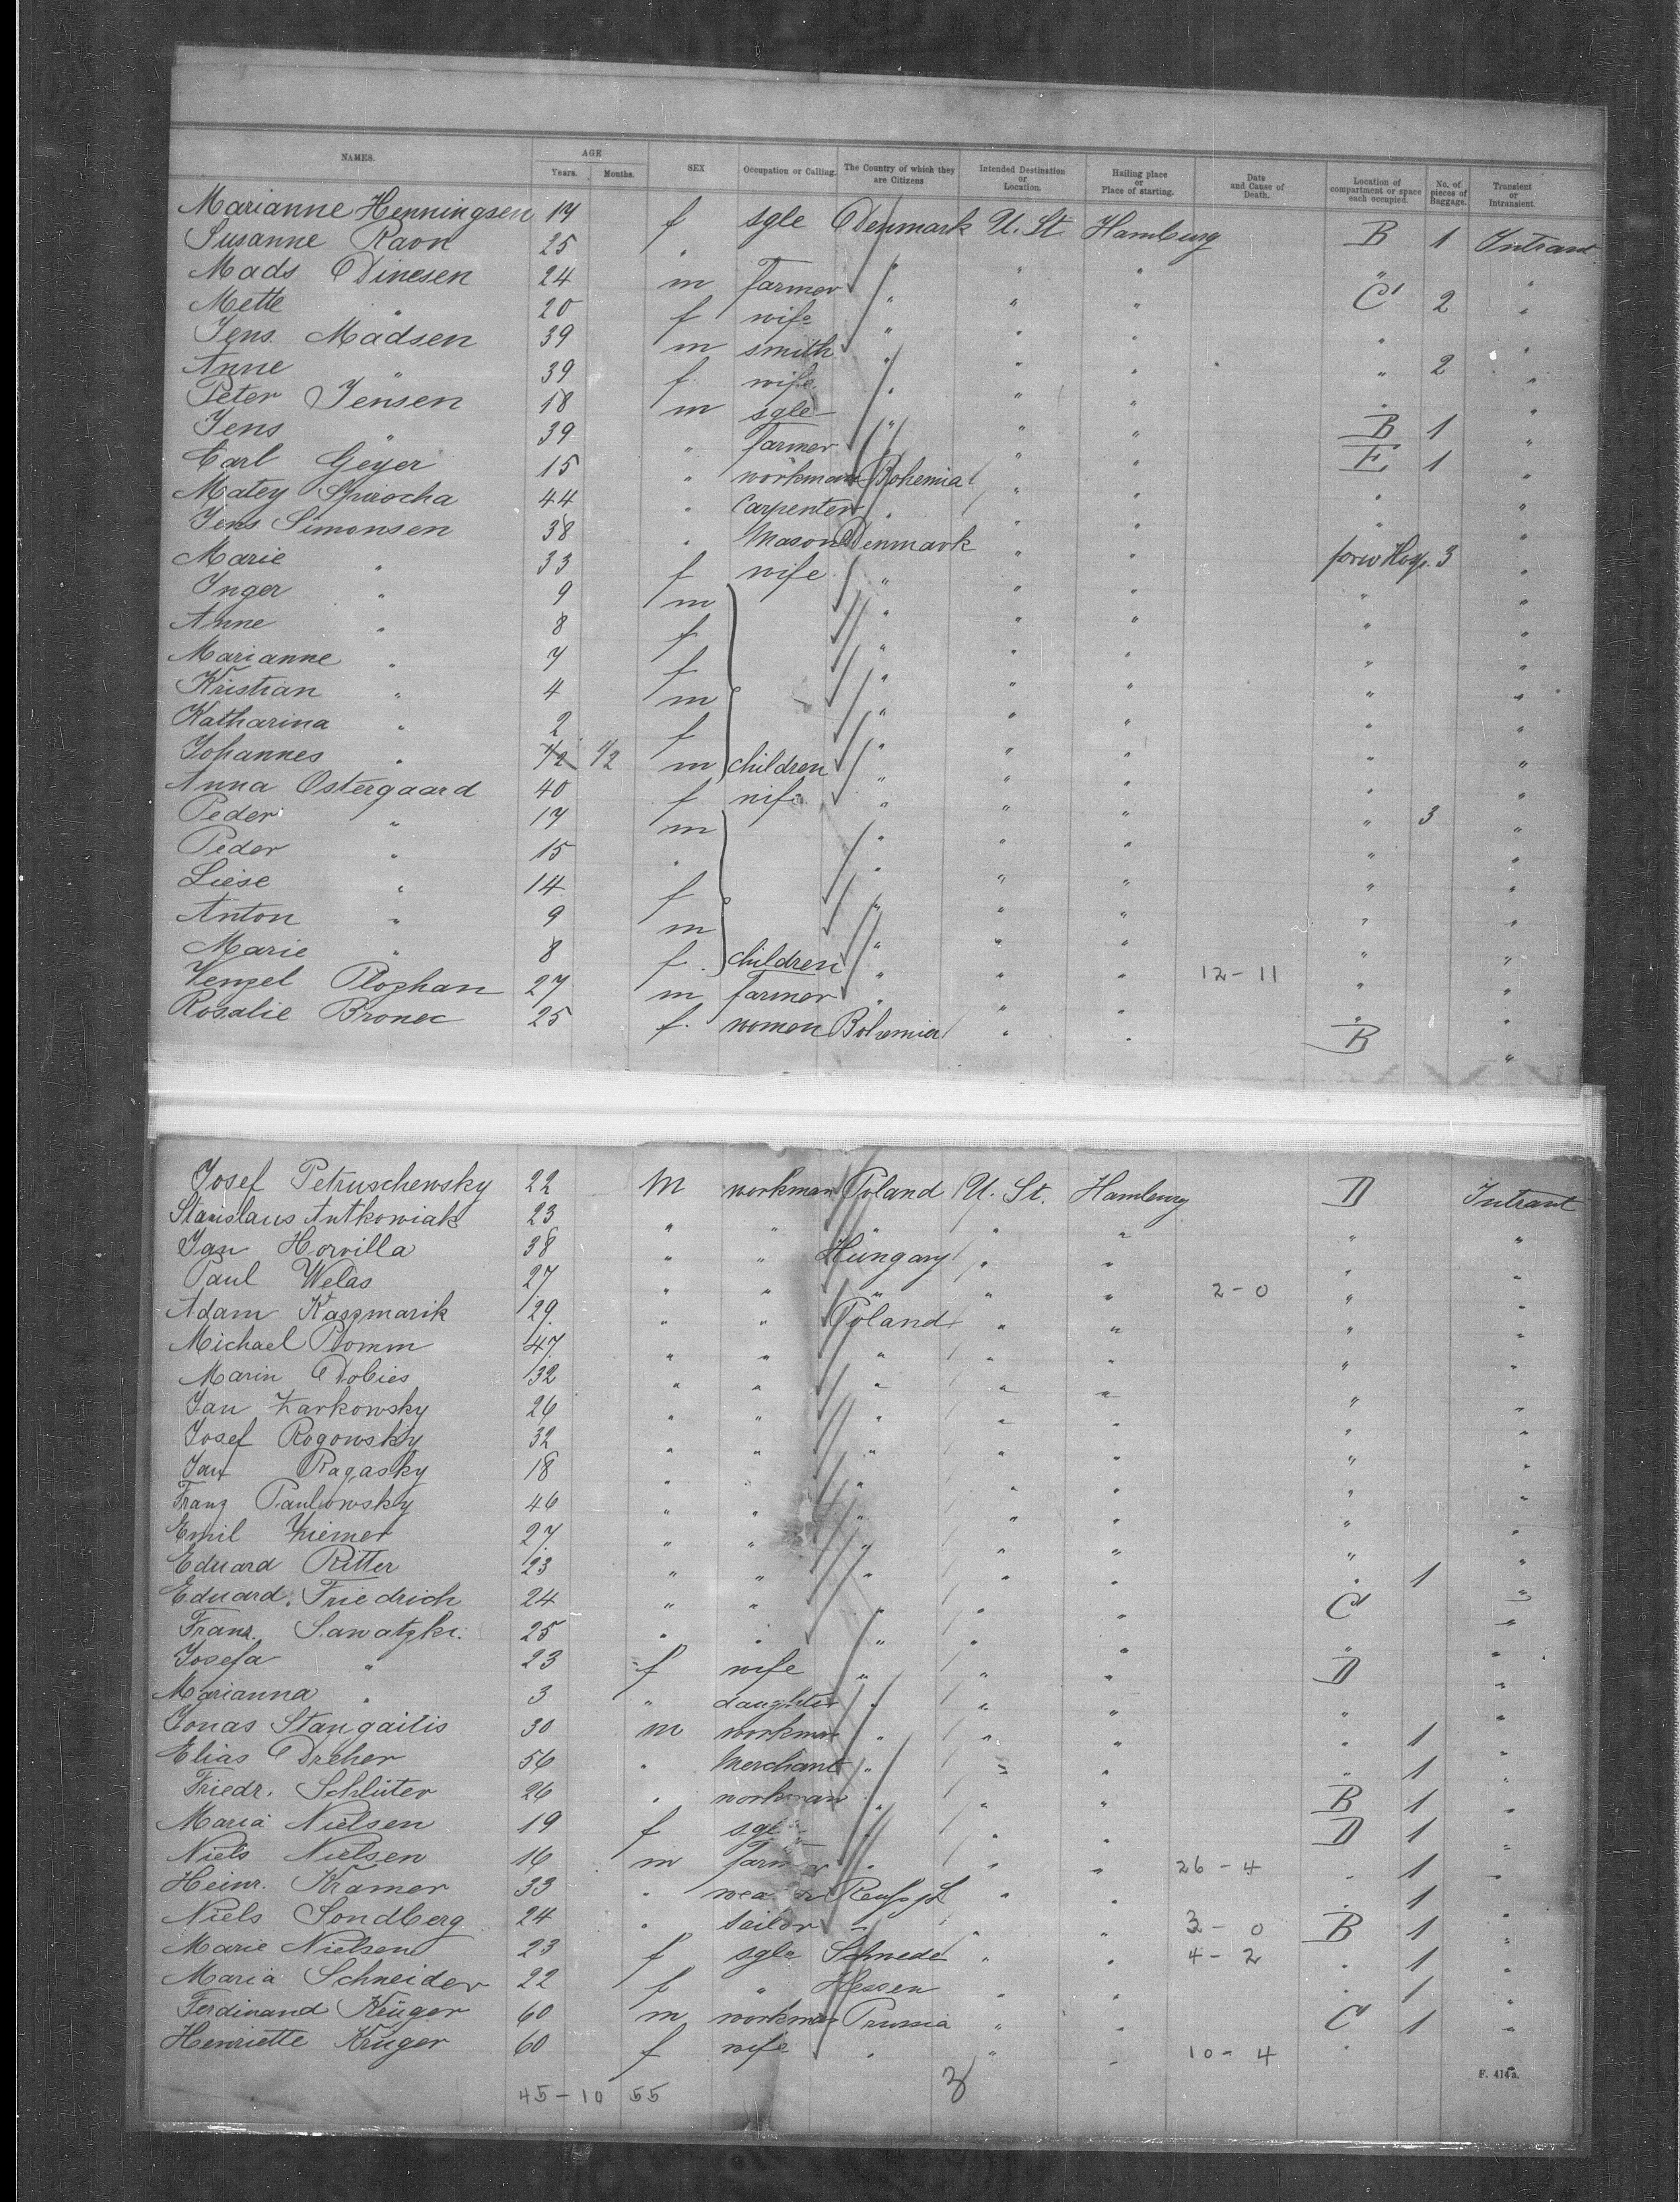 NAMES. AGE Years. Months. SEX Occupation or Calling. The Country of which they are Citizens Intended Destination or Location. Hailing place or Place of starting. Date and Cause of Death. Location of compartment or space each occupied. No. of pieces of Baggage. Transient or Intransient.
Marianne Henningsen 17 f sgle Denmark U. St. Hamburg B 1 Intrant.
Susanne Ravn 25 " " " " " "
Mads Dinesen 24 m Farmer " " " C 2 "
Mette " 20 f wife " " " " "
Jens Madsen 39 m smith " " " " 2 "
Anne " 39 f wife " " " " "
Peter Jensen 18 m sgle " " " B 1 "
Jens " 39 " Farmer " " " E 1 "
Carl Geyer 15 " workman Bohemia " " " "
Matey 44 " Carpenter " " " " "
Jens Simonsen 38 " Mason Denmark " " 3 "
Marie " 33 f wife " " " " "
Inger " 9 m " " " " "
Anne " 8 f " " " " "
Marianne " 7 f " " " " "
Kristian " 4 m " " " " "
Katharina " 2 f " " " " "
Johannes " 1/2 1/2 m children " " " " "
Anna Ostergaard 40 f wife " " " " 3 "
Peder " 17 m " " " " "
Peder " 15 " " " " " "
Liese " 14 f " " " " "
Anton " 9 m " " " " "
Marie " 8 f children " " " " "
Wenzel 27 m Farmer " " " 12-11 " "
Rosalie Bronec 25 f. women Bohemia " " B "
Josef Petruschewsky 22 M workman Poland U. St. Hamburg D Intrant
Stanislaus Antkowiak 23 " " " " " " "
Jan Horvilla 38 " " Hungary " " " "
Paul Welas 27 " " " " " 2-0 " "
Adam Kaszmarik 29 " " Poland " " " "
Michael Domm 47 " " " " " " "
Marin Dobies 32 " " " " " " "
Jan Zarkowsky 26 " " " " " " "
Josef Rogowsky 32 " " " " " " "
Jan Ragasky 18 " " " " " " "
Franz Paulowsky 46 " " " " " " "
Emil Ziemer 27 " " " " " " "
Eduard Ritter 23 " " " " " " 1 "
Eduard Friedrich 24 " " " " " C "
Franz. Sawatzki 25 " " " " " " "
Josefa " 23 f wife " " " D "
Marianna " 3 " daughter " " " " "
Jonas Stangaitis 30 m workman " " " " 1 "
Elias Dreher 56 " Merchant " " " " 1 "
Friedr. Schlüter 26 " workman " " " B 1 "
Maria Nielsen 19 f sgl " " " D 1 "
Niels Nielsen 16 m Farmer " " " 26-4 " 1 "
Heinr. Kramer 33 " " " " 1 "
Niels Sondberg 24 " sailor " " " 3-0 B 1 "
Marie Nielsen 23 f sgle Schwede " " 4-2 " 1 "
Maria Schneider 22 f " Hessen " " " 1 "
Ferdinand Krüger 60 m workman Prussia " " C 1 "
Henriette Krüger 60 f wife " " " 10-4 " "
45-10 55 3
F. 414a.